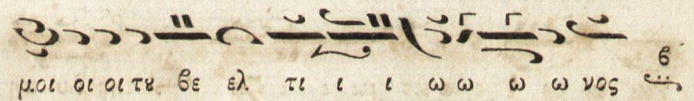 μοι οι οι του βε ελ τι ι ι ω ω ω ω νος β